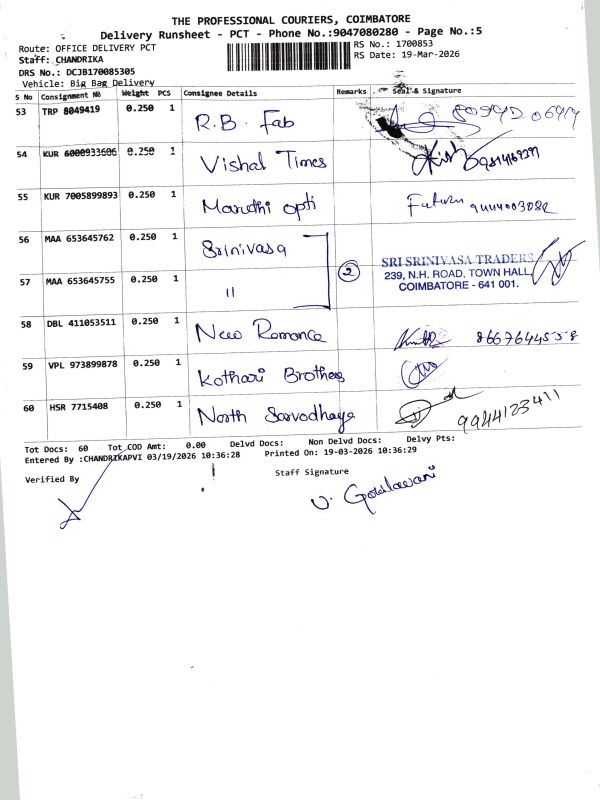 THE PROFESSIONAL COURIERS, COIMBATORE
Delivery Runsheet - PCT - Phone No.:9047080280 - Page No.:5
Route: OFFICE DELIVERY PCT
RS No.: 1700853
Staff: CHANDRIKA
RS Date: 19-Mar-2026
DRS No.: DCJB170085305
Vehicle: Big Bag Delivery
S No Consignment No Weight PCS Consignee Details Remarks Seal & Signature
53 TRP 8049419 0.250 1 R.B. Fab
54 KUR 6000933606 0.250 1 Vishal Times
55 KUR 7005899893 0.250 1 Maruthi opti
56 MAA 653645762 0.250 1 Srinivasa
57 MAA 653645755 0.250 1 " 2
SRI SRINIVASA TRADERS
239, N.H. ROAD, TOWN HALL,
COIMBATORE - 641 001.
58 DBL 411053511 0.250 1 New Romance 8667644558
59 VPL 973899878 0.250 1 Kothari Brothers
60 HSR 7715408 0.250 1 North Sarvodhaya 9944123411
Tot Docs: 60 Tot COD Amt: 0.00 Delvd Docs: Non Delvd Docs: Delvy Pts:
Entered By :CHANDRIKAPVI 03/19/2026 10:36:28 Printed On: 19-03-2026 10:36:29
Verified By Staff Signature